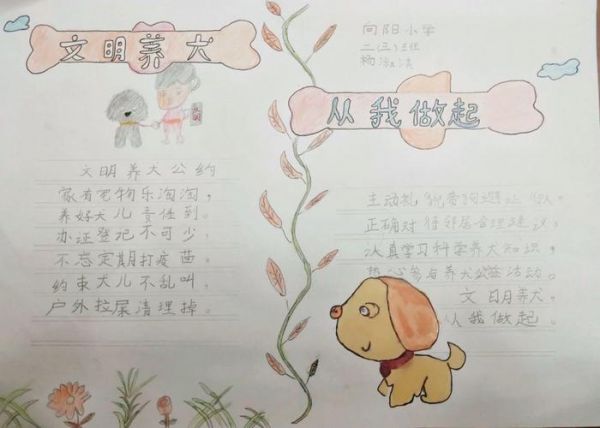 文明养犬
文明养犬公约
家有宠物乐淘淘，
养好犬儿责任到。
办证登记不可少，
不忘定期打疫苗。
约束犬儿不乱叫，
户外拉屎清理掉。
向阳小学
二（三）班
杨
从我做起
主动礼 让 人。
正确对待邻居合理建议，
认真学习科学养犬知识，
热心参与养犬公益活动。
文明养犬，
从我做起。